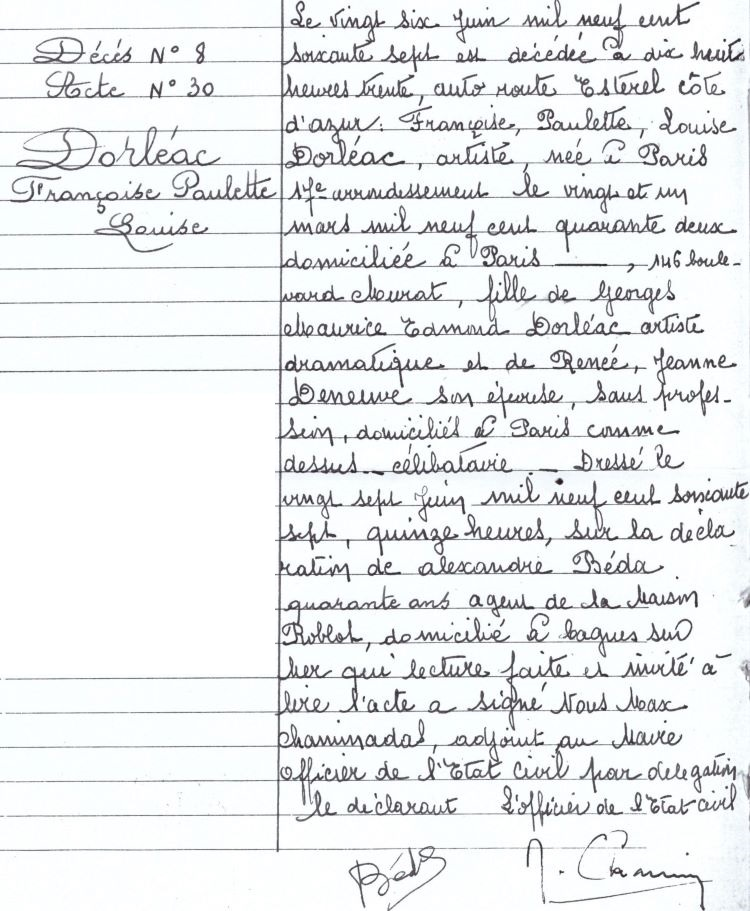 Décés N° 8
Acte N° 30
Dorléac
Françoise Paulette
Louise
Le vingt six Juin mil neuf cent
soixante sept est décédée à dix huit
heures trente, auto route Esterel côte
d'azur: Françoise, Paulette, Louise
Dorléac, artiste, née à Paris
17e arrondissement le vingt et un
mars mil neuf cent quarante deux
domiciliée à Paris ——, 146 boule-
vard Murat, fille de Georges
Maurice Edmond Dorléac artiste
dramatique et de Renée, Jeanne
Deneuve son épouse, sans profes-
sion, domiciliés à Paris comme
dessus _ célibataire _ Dressé le
vingt sept Juin mil neuf cent soixante
sept, quinze heures, sur la décla
ration de alexandre Béda
quarante ans agent de la Maison
Roblot, domicilié à Cagnes sur
Mer qui lecture faite et invité à
lire l'acte a signé Nous Max
Chaminadas, adjoint au Maire
officier de l'Etat civil par delegation
le déclarant L'officier de l'Etat civil
Béda